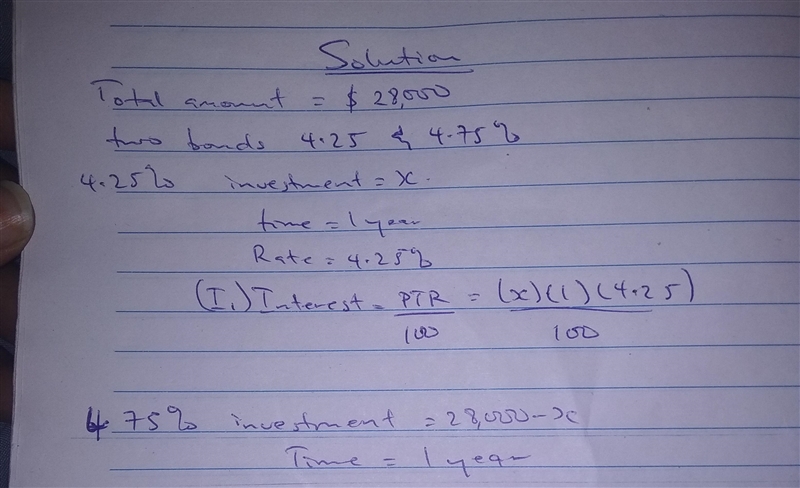 Solution
Total amount = $ 28,000
two bonds 4.25 & 4.75%
4.25% investment = x.
time = 1 year
Rate = 4.25%
(I₁) Interest = PTR/100 = (x)(1)(4.25)/100
4.75% investment = 28,000-x
Time = 1 year